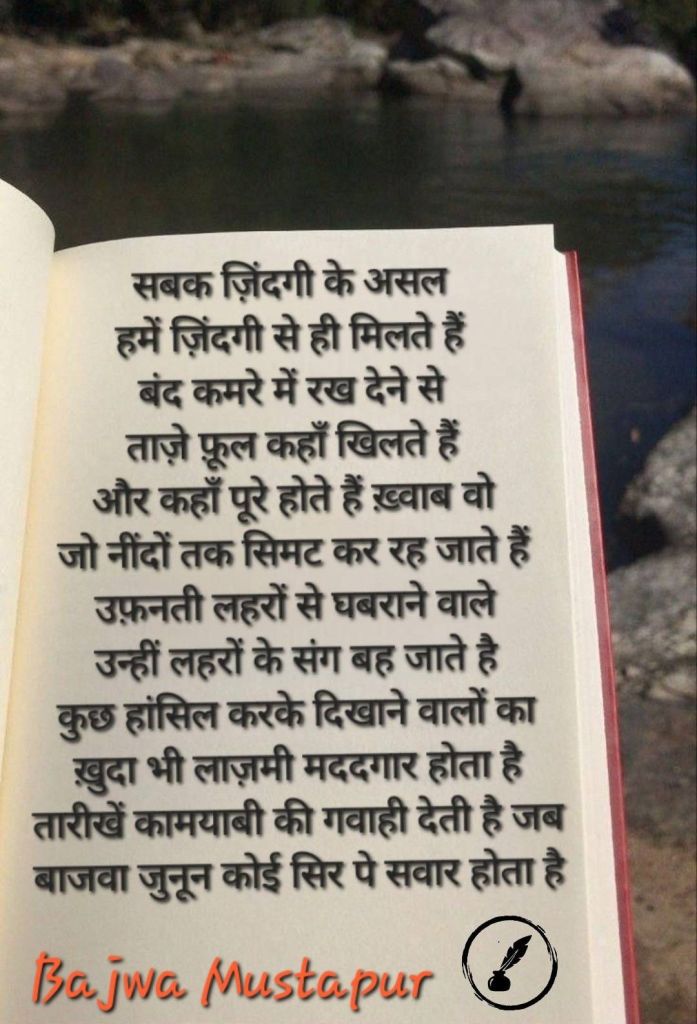 सबक ज़िंदगी के असल
हमें ज़िंदगी से ही मिलते हैं
बंद कमरे में रख देने से
ताज़े फ़ूल कहाँ खिलते हैं
और कहाँ पूरे होते हैं ख़्वाब वो
जो नींदों तक सिमट कर रह जाते हैं
उफ़नती लहरों से घबराने वाले
उन्हीं लहरों के संग बह जाते है
कुछ हांसिल करके दिखाने वालों का
ख़ुदा भी लाज़मी मददगार होता है
तारीखें कामयाबी की गवाही देती है जब
बाजवा जुनून कोई सिर पे सवार होता है
Bajwa Mustapur